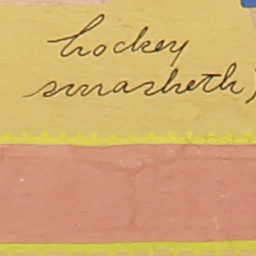 hockey
smasheth)